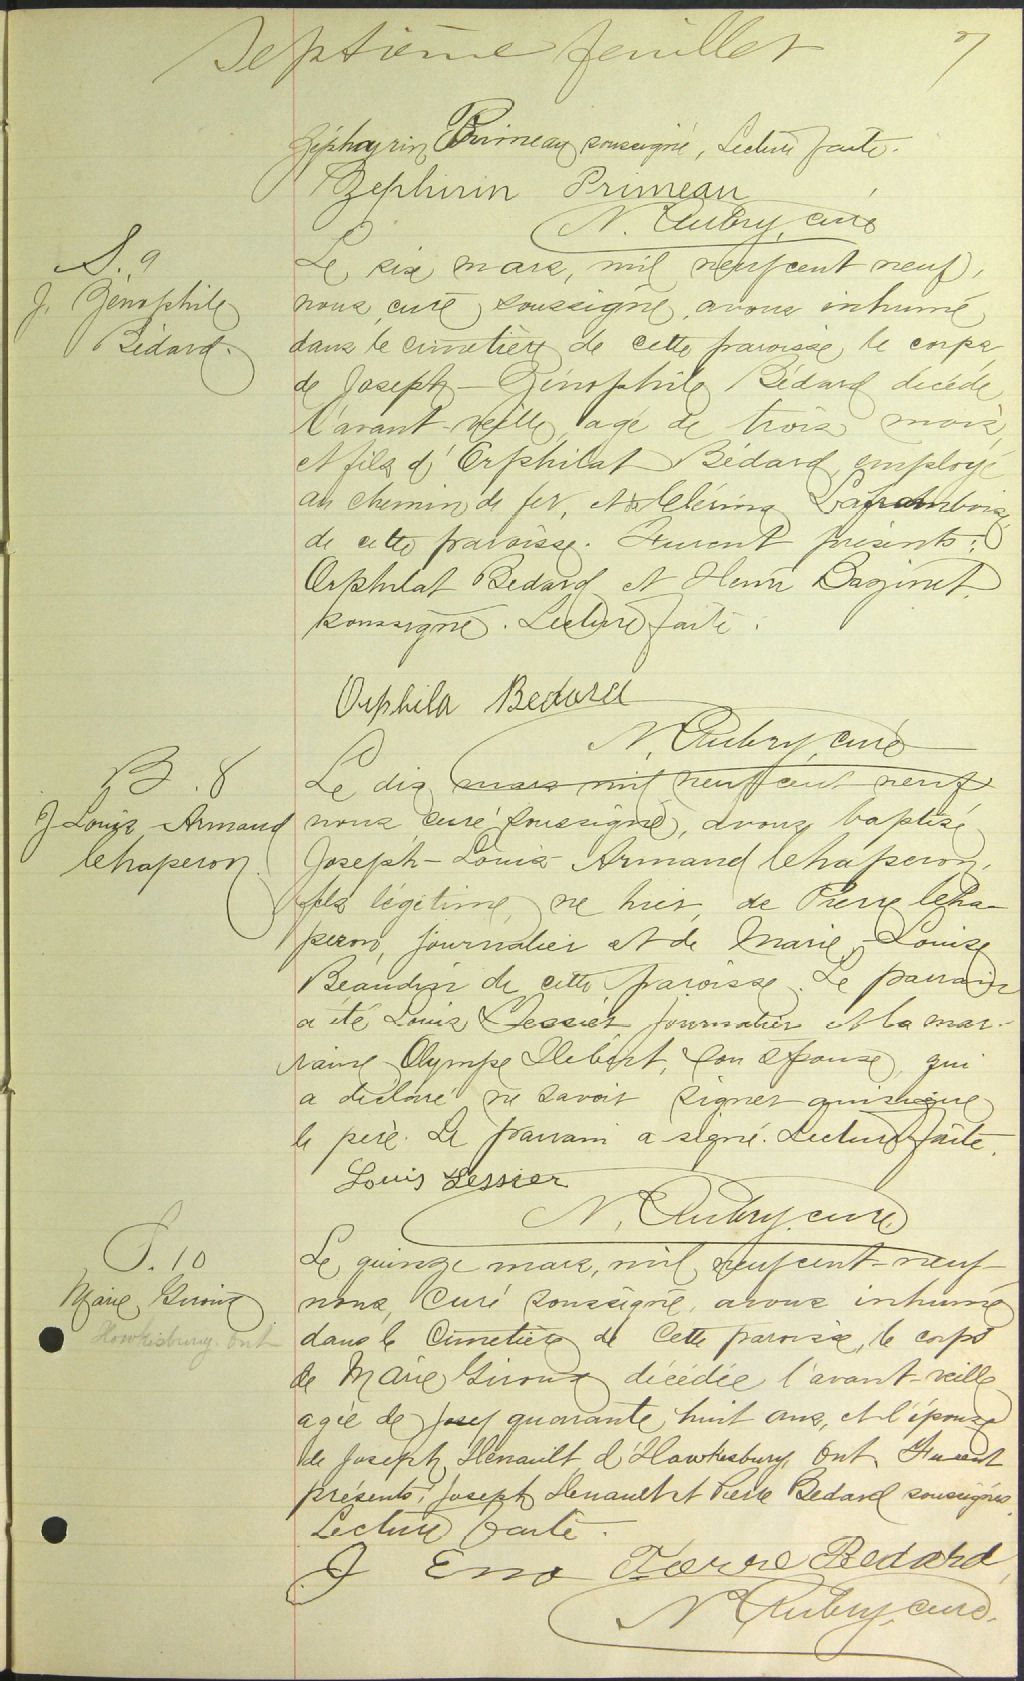 Septième feuillet
7
Zéphayrin Primeau soussigné, Lecture faite.
Zephirin Primeau
N. Aubry, curé
S. 9
J. Zénophile
Bédard.
Le six mars, mil neuf cent neuf,
nous, curé soussigné, avons inhumé
dans le cimetière de cette paroisse, le corps
de Joseph-Zénophile Bédard décédé
l'avant-veille, agé de trois mois,
et fils d'Orphilat Bédard, employé
au chemin de fer, et de Clérina Laframboise
de cette paroisse. Furent présents:
Orphilat Bedard et Henri Bazinet
soussigné. Lecture faite.
Orphila Bedard
N. Aubry, curé
B. 8
J Louis-Armand
Chaperon.
Le dix mars mil neuf cent neuf
nous, curé soussigné, avons baptisé
Joseph-Louis-Armand Chaperon,
fils légitime, né hier, de Pierre Cha-
peron, journalier et de Marie-Louise
Beaudin de cette paroisse. Le parrain
a été Louis Lessier journalier et la mar-
raine Olympe Hébert, son épouse, qui
a déclaré ne savoir signer ainsi que
le père. Le parrain a signé. Lecture faite.
Louis Lessier
N. Aubry, curé
S. 10
Marie Giroux
Hawkisbury. Ont
Le quinze mars, mil neuf cent-neuf
nous, Curé soussigné, avons inhumé
dans le Cimetière de cette paroisse, le corps
de Marie Giroux décédée l'avant-veille
agée de quarante huit ans, et l'épouse
de Joseph Henault d'Hawkisbury, Ont. Furent
présents: Joseph Henault et Pierre Bedard soussignés.
Lecture faite.
J Eno Pierre Bedard
N. Aubry, curé.